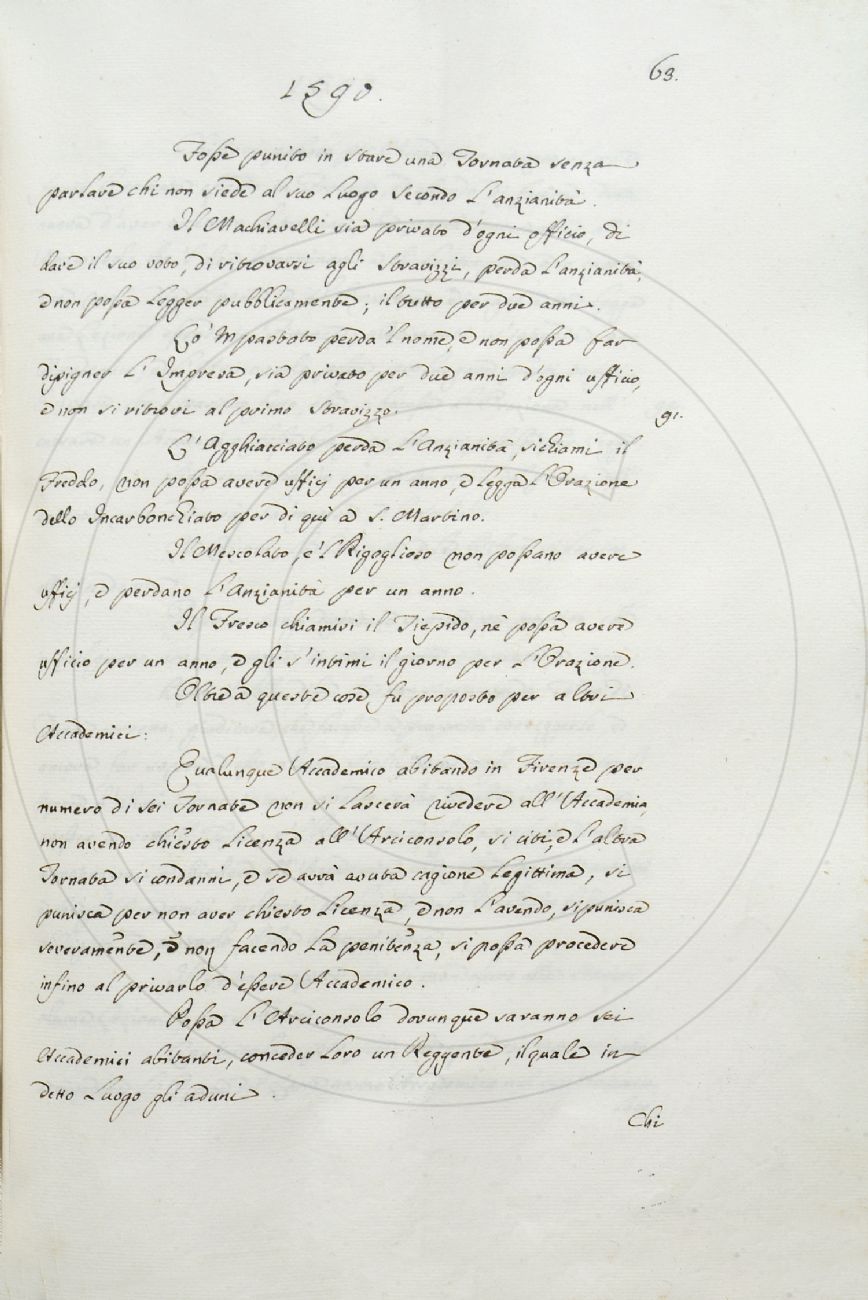 1590.
63.
Fosse punito in stare una Tornata senza
parlare chi non siede al suo Luogo secondo L'anzianità.
Il Machiavelli sia privato d'ogni officio, di
dare il suo voto, di ritrovarsi agli Stravizzi, perda L'anzianità,
e non possa Legger pubblicamente; il tutto per due anni.
Lo' Mpastato perda 'l nome, e non possa far
dipigner L'Impresa, sia privato per due anni d'ogni ufficio,
e non si ritrovi al primo Stravizzo.
91.
L'Agghiacciato perda L'Anzianità, si chiami il
Freddo, non possa avere ufficj per un anno, e Legga L'Orazione
dello Incarbonchiato per di quì a S. Martino.
Il Mescolato, e 'l Rigoglioso non possano avere
ufficj, e perdano L'Anzianità per un anno.
Il Fresco chiamisi il Tiepido, nè possa avere
ufficio per un anno, e gli s'intimi il giorno per L'Orazione.
Oltre a queste cose fu proposto per altri
Accademici:
Qualunque Accademico abitando in Firenze per
numero di sei Tornate non si Lascerà rivedere all'Accademia,
non avendo chiesto Licenza all'Arciconsolo, si citi, e L'altra
Tornata si condanni, e se avrà avuta cagione Legittima, si
punisca per non aver chiesto Licenza, e non L'avendo, si punisca
severamente, e non facendo La penitenza, si possa procedere
infino al privarlo d'essere Accademico.
Possa L'Arciconsolo dovunque saranno sei
Accademici abitanti, conceder Loro un Reggente, il quale in
detto Luogo gli aduni.
Chi